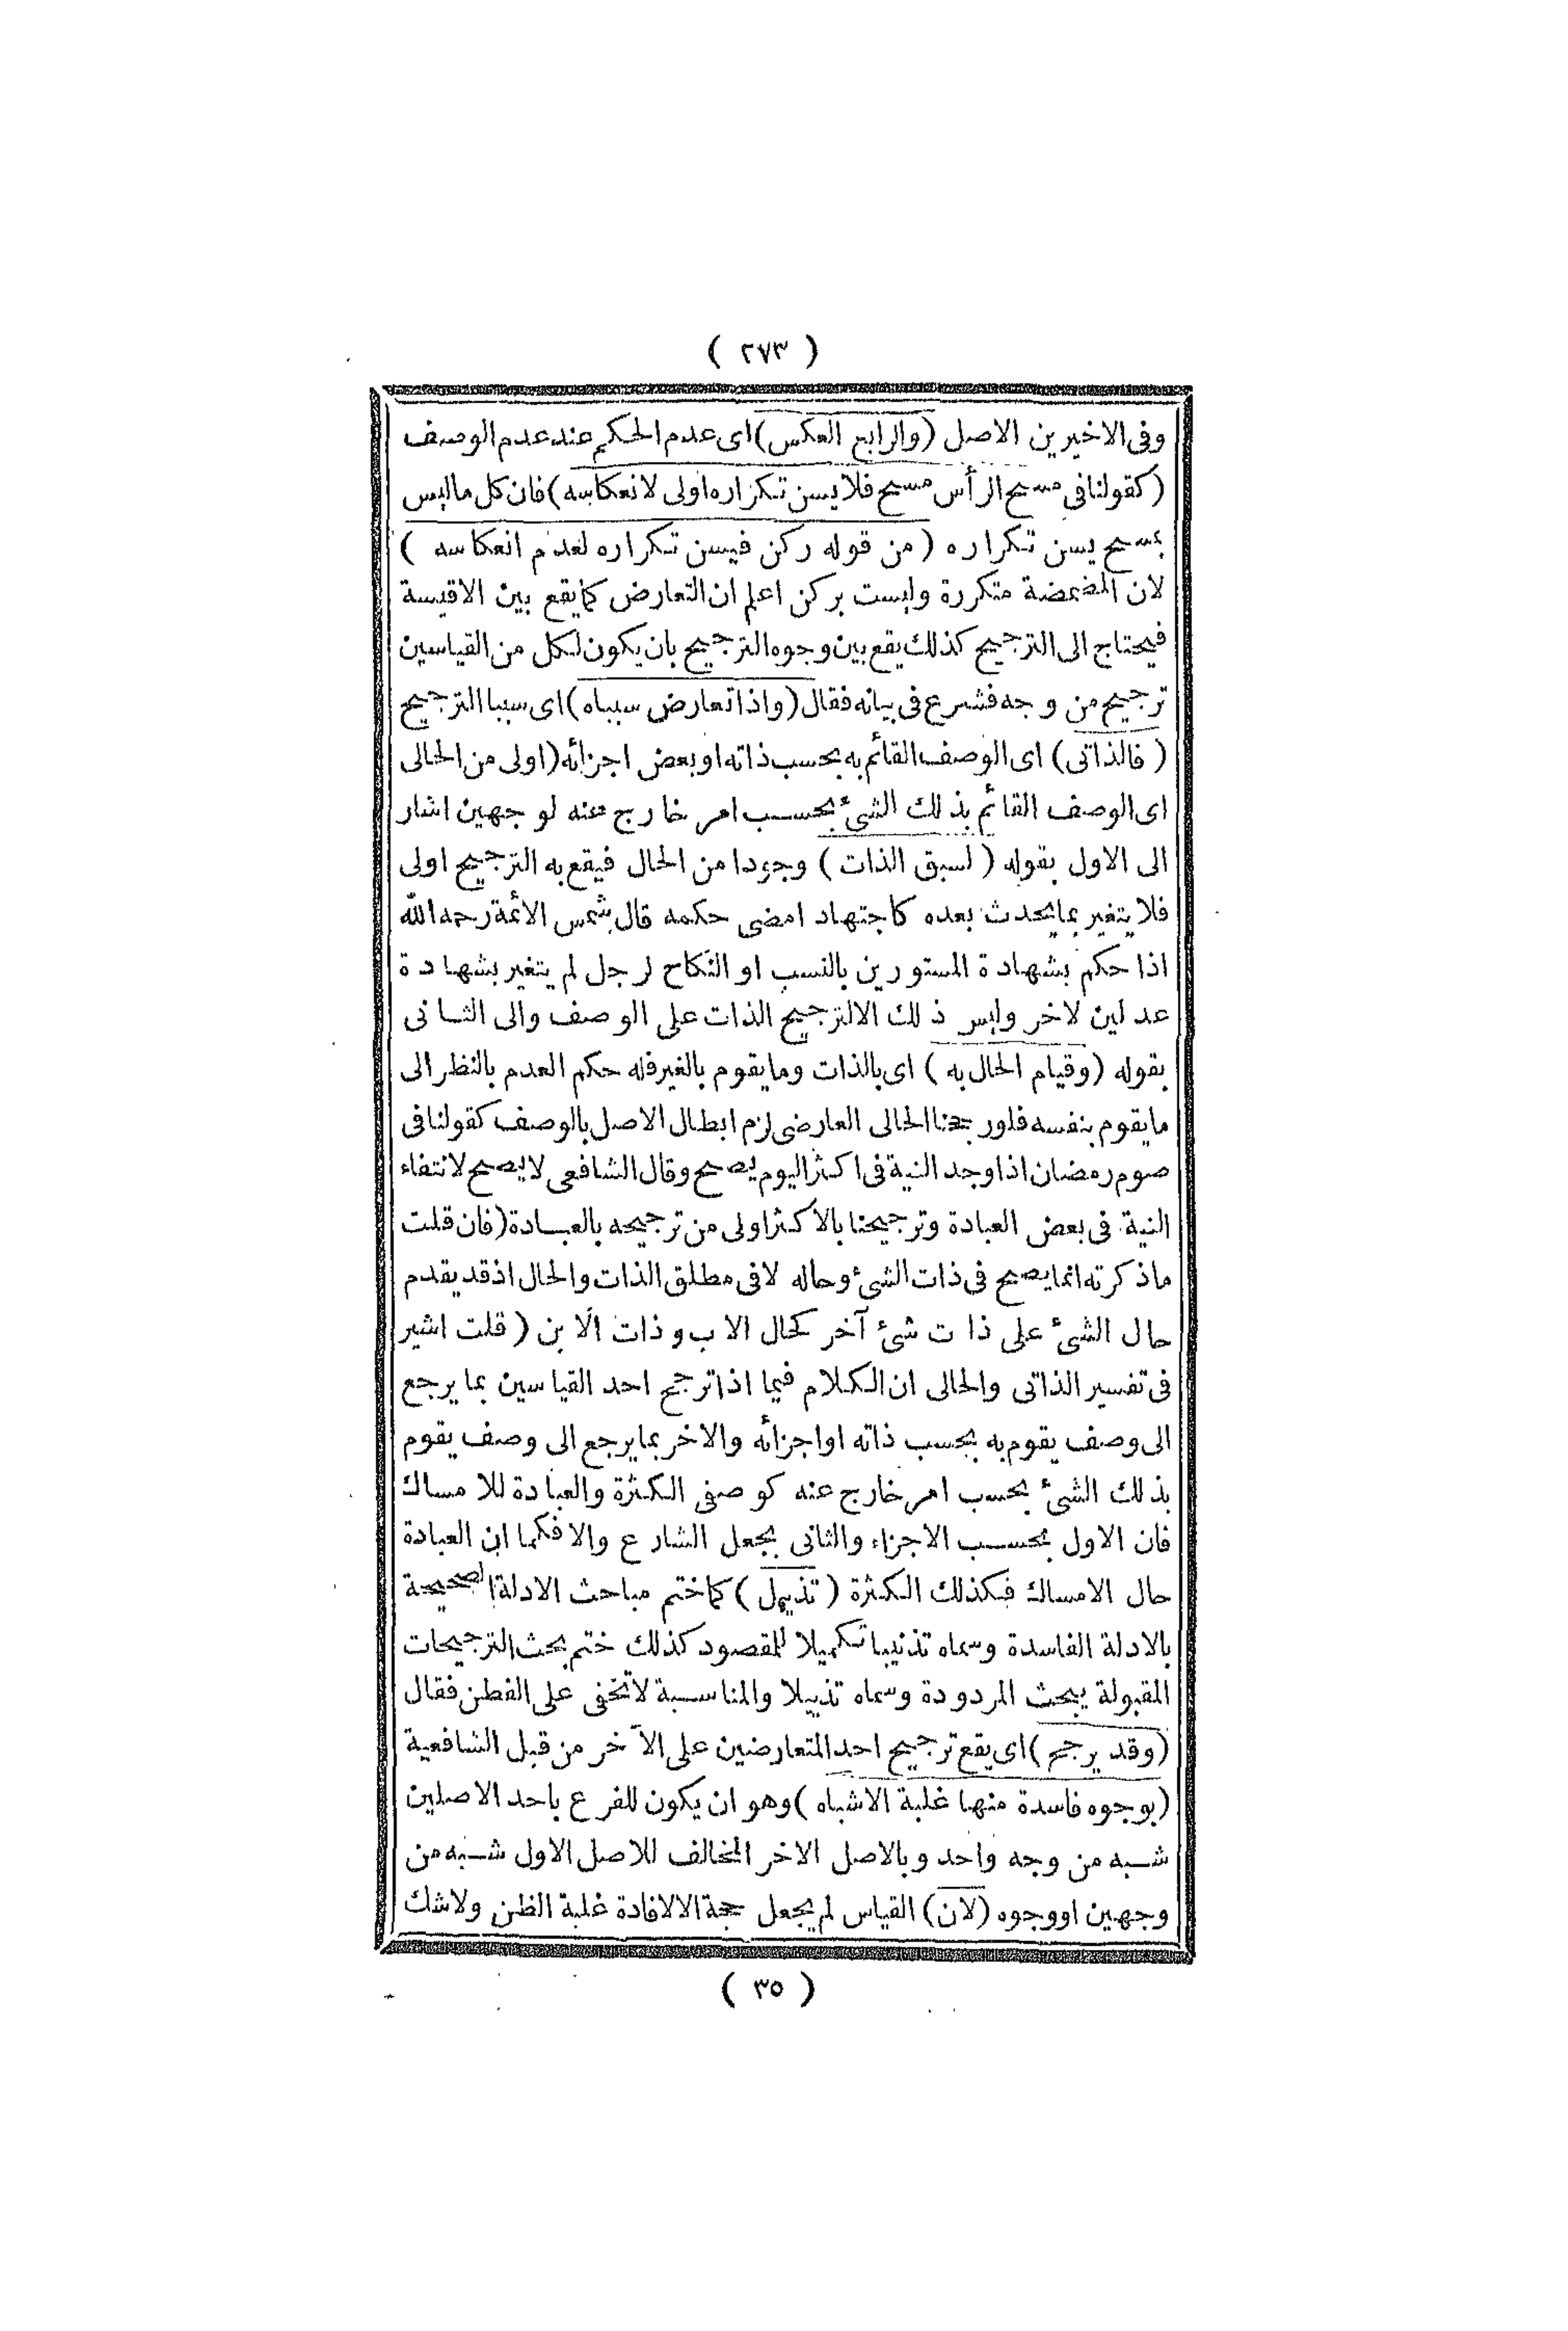 ( ٢٧٣ )
وفى الاخيرين الاصل (والرابع العكس) اى عدم الحكم عند عدم الوصف
(كقولنا فى مسح الرأس مسح فلا يسن تكراره اولى لانعكاسه) فان كل ما ليس
بمسح يسن تكراره (من قوله ركن فيسن تكراره لعدم انعكاسه)
لان المضمضة متكررة وليست بركن اعلم ان التعارض كما يقع بين الاقيسة
فيحتاج الى الترجيح كذلك يقع بين وجوه الترجيح بان يكون لكل من القياسين
ترجيح من وجه فشرع فى بيانه فقال (واذا تعارض سبباه) اى سببا الترجيح
(فالذاتى) اى الوصف القائم به بحسب ذاته او بعض اجزائه (اولى من الحالى
اى الوصف القائم بذلك الشئ بحسب امر خارج عنه لوجهين اشار
الى الاول بقوله (لسبق الذات) وجودا من الحال فيقع به الترجيح اولى
فلا يتغير بما يحدث بعده كاجتهاد امضى حكمه قال شمس الائمة رحمه الله
اذا حكم بشهادة المستورين بالنسب او النكاح لرجل لم يتغير بشهادة
عدلين لاخر وليس ذلك الا لترجيح الذات على الوصف والى الثانى
بقوله (وقيام الحال به) اى بالذات وما يقوم بالغير فله حكم العدم بالنظر الى
ما يقوم بنفسه فلو رجحنا الحالى العارضى لزم ابطال الاصل بالوصف كقولنا فى
صوم رمضان اذا وجد النية فى اكثر اليوم يصح وقال الشافعى لا يصح لانتفاء
النية فى بعض العبادة وترجيحنا بالاكثر اولى من ترجيحه بالعبادة (فان قلت
ما ذكرته انما يصح فى ذات الشئ وحاله لا فى مطلق الذات والحال اذ قد يقدم
حال الشئ على ذات شئ آخر كحال الاب وذات الابن (قلت اشير
فى تفسير الذاتى والحالى ان الكلام فيما اذا ترجح احد القياسين بما يرجع
الى وصف يقوم به بحسب ذاته او اجزائه والاخر بما يرجع الى وصف يقوم
بذلك الشئ بحسب امر خارج عنه كوصفى الكثرة والعبادة للامساك
فان الاول بحسب الاجزاء والثانى بجعل الشارع والا فكما ان العبادة
حال الامساك فكذلك الكثرة (تذييل) كما ختم مباحث الادلة الصحيحة
بالادلة الفاسدة وسماه تذنيبا تكميلا للمقصود كذلك ختم بحث الترجيحات
المقبولة ببحث المردودة وسماه تذييلا والمناسبة لا تخفى على الفطن فقال
(وقد يرجح) اى يقع ترجيح احد المتعارضين على الآخر من قبل الشافعية
(بوجوه فاسدة منها غلبة الاشباه) وهو ان يكون للفرع باحد الاصلين
شبه من وجه واحد وبالاصل الاخر المخالف للاصل الاول شبه من
وجهين او وجوه (لان) القياس لم يجعل حجة الا لافادة غلبة الظن ولا شك
( ٣٥ )